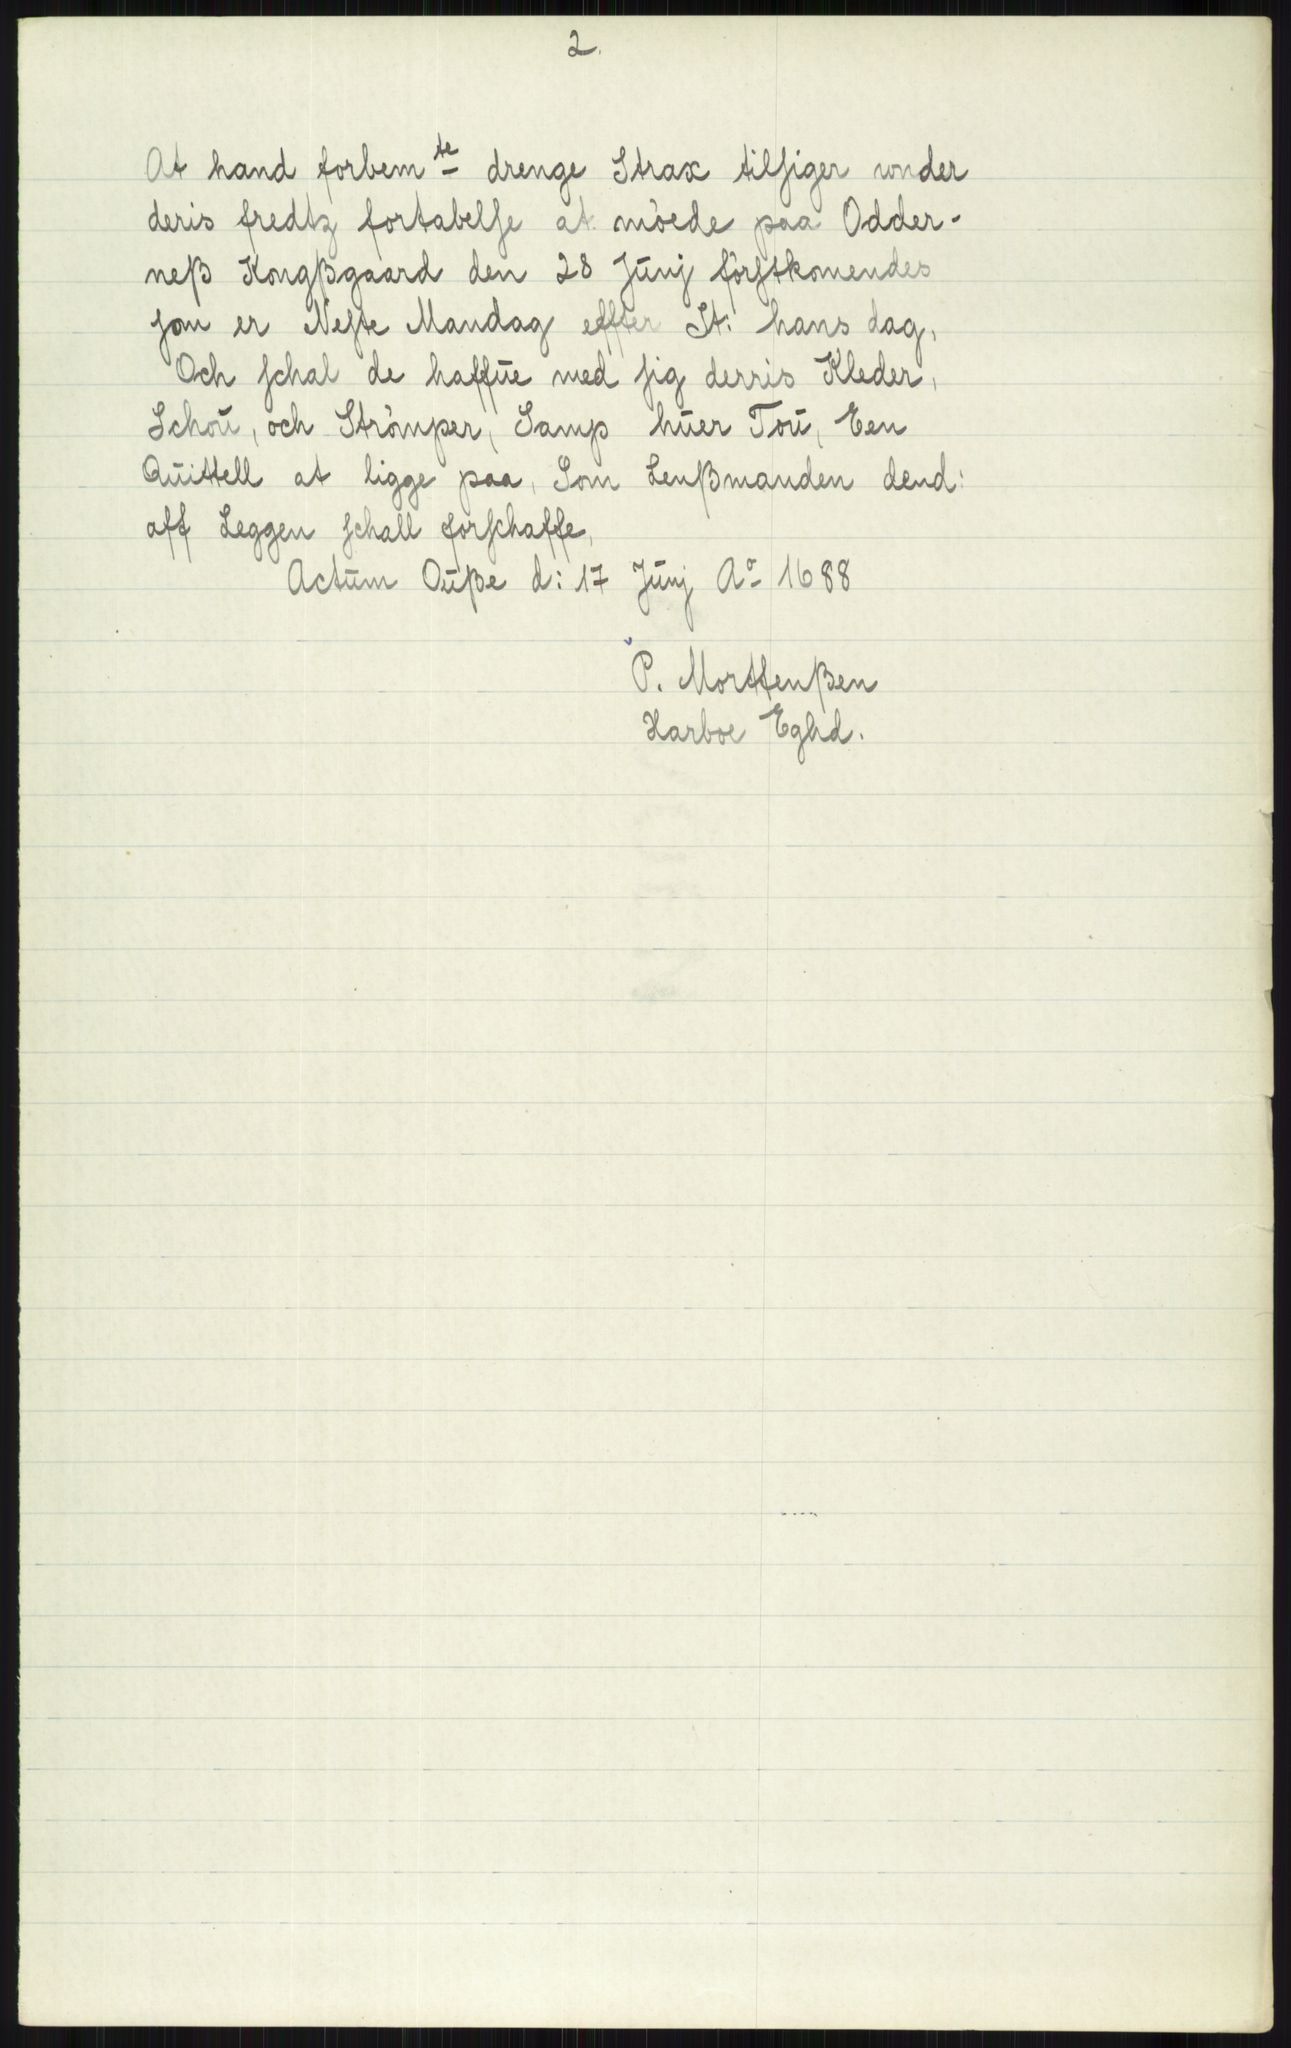 2.
At hand forbem<sup>te</sup> drenge Strax tilsiger vnder
deris fredtz fortabelse at möede paa Odder-
neß Kongßgaard den 28 Jünj förstkomendes
som er Neste Mandag effter St: hans dag,
Och schal de haffüe med sig derris Kleder,
Schoü, och Strömper, Samp hüer Toü, Een
Qüittell at ligge paa, Som Lenßmanden dend:
aff Leggen schall forschaffe,
Actüm Oüße d: 17 Jünj A<sup>o</sup> 1688
P. Morttenßen
Harboe Eghd.